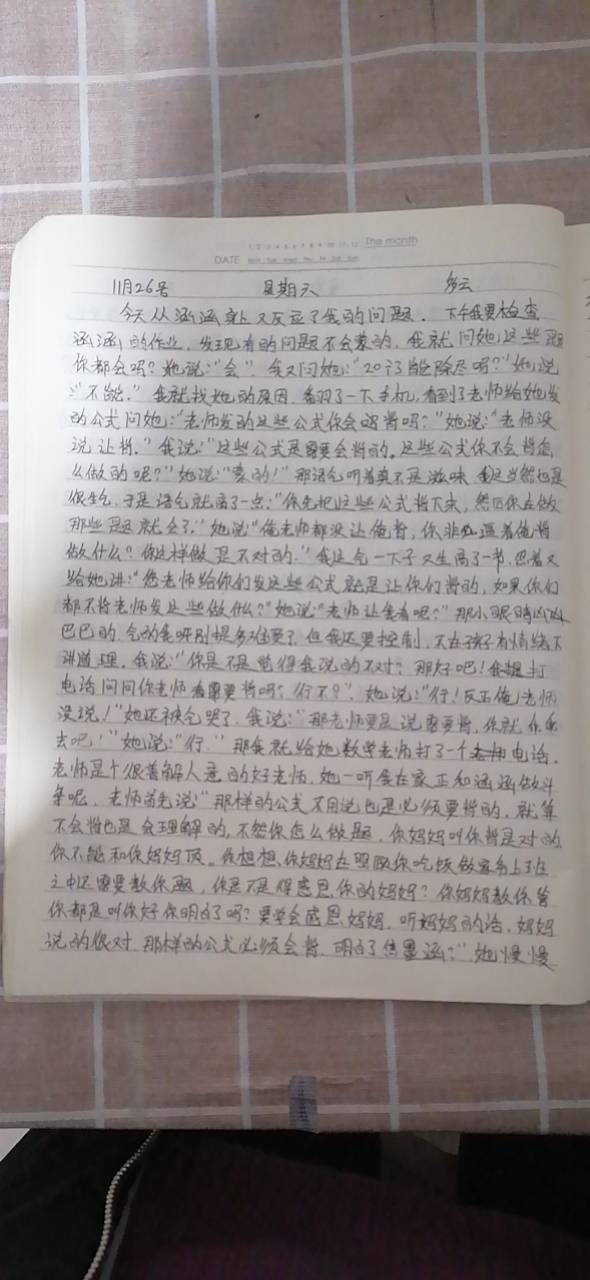 1 2 3 4 5 6 7 8 9 10 11 12 The month
DATE Mon Tue Wed Thu Fri Sat Sun
11月26号 星期天 多云
今天从涵涵身上又反应了我的问题。下午我要检查
涵涵的作业，发现有的问题不会蒙的，我就问她这些题
你都会吗？她说：“会”。我又问她：“20门能除尽吗？”她说
：“不能。”我就找她的原因，翻了一下手机，看到了老师给她发
的公式问她：“老师发的这些公式你会背吗？”她说：“老师没
说让背。”我说：“这些公式是需要会背的。这些公式你不会背怎
么做的呢？”她说：“蒙的！”那语气听着真不是滋味，我这当然也是
很生气，于是语气就高了一点：“你先把这些公式背下来，然后你在做
那些题就会了。”她说“俺老师都没让俺背，你非逼着俺背
做什么？你这样做是不对的。”我这气一下子又生高了一节，忍着又
给她讲：“您老师给你们发这些公式就是让你们背的，如果你们
都不背老师发这些做什么？”她说：“老师让我看呢？”那小眼睛凶凶
巴巴的，气的我呀别提多难受了，但我还要控制，不在孩子有情绪下
讲道理，我说：“你是不是觉得我说的不对？那好吧！我打
电话问问你老师看需要背吗？行不？”，她说：“行！反正俺老师
没说！”她还被气哭了，我说：“那老师要是说需要背，你就
去吧！”她说：“行”那我就给她数学老师打了一个电话，
老师是个很善解人意的好老师，她一听我在家正和涵涵做斗
争呢，老师首先说“那样的公式不用说也是必须要背的，就算
不会背也是会理解的，不然你怎么做题，你妈妈叫你背是对的
你不能和你妈妈顶。你想想，你妈妈在照顾你吃饭做家务上班
之中还需要教你题，你是不是得感恩你的妈妈？你妈妈教你管
你都是叫你好你明白了吗？要学会感恩妈妈，听妈妈的话，妈妈
说的很对，那样的公式必须会背，明白了涵？”她慢慢